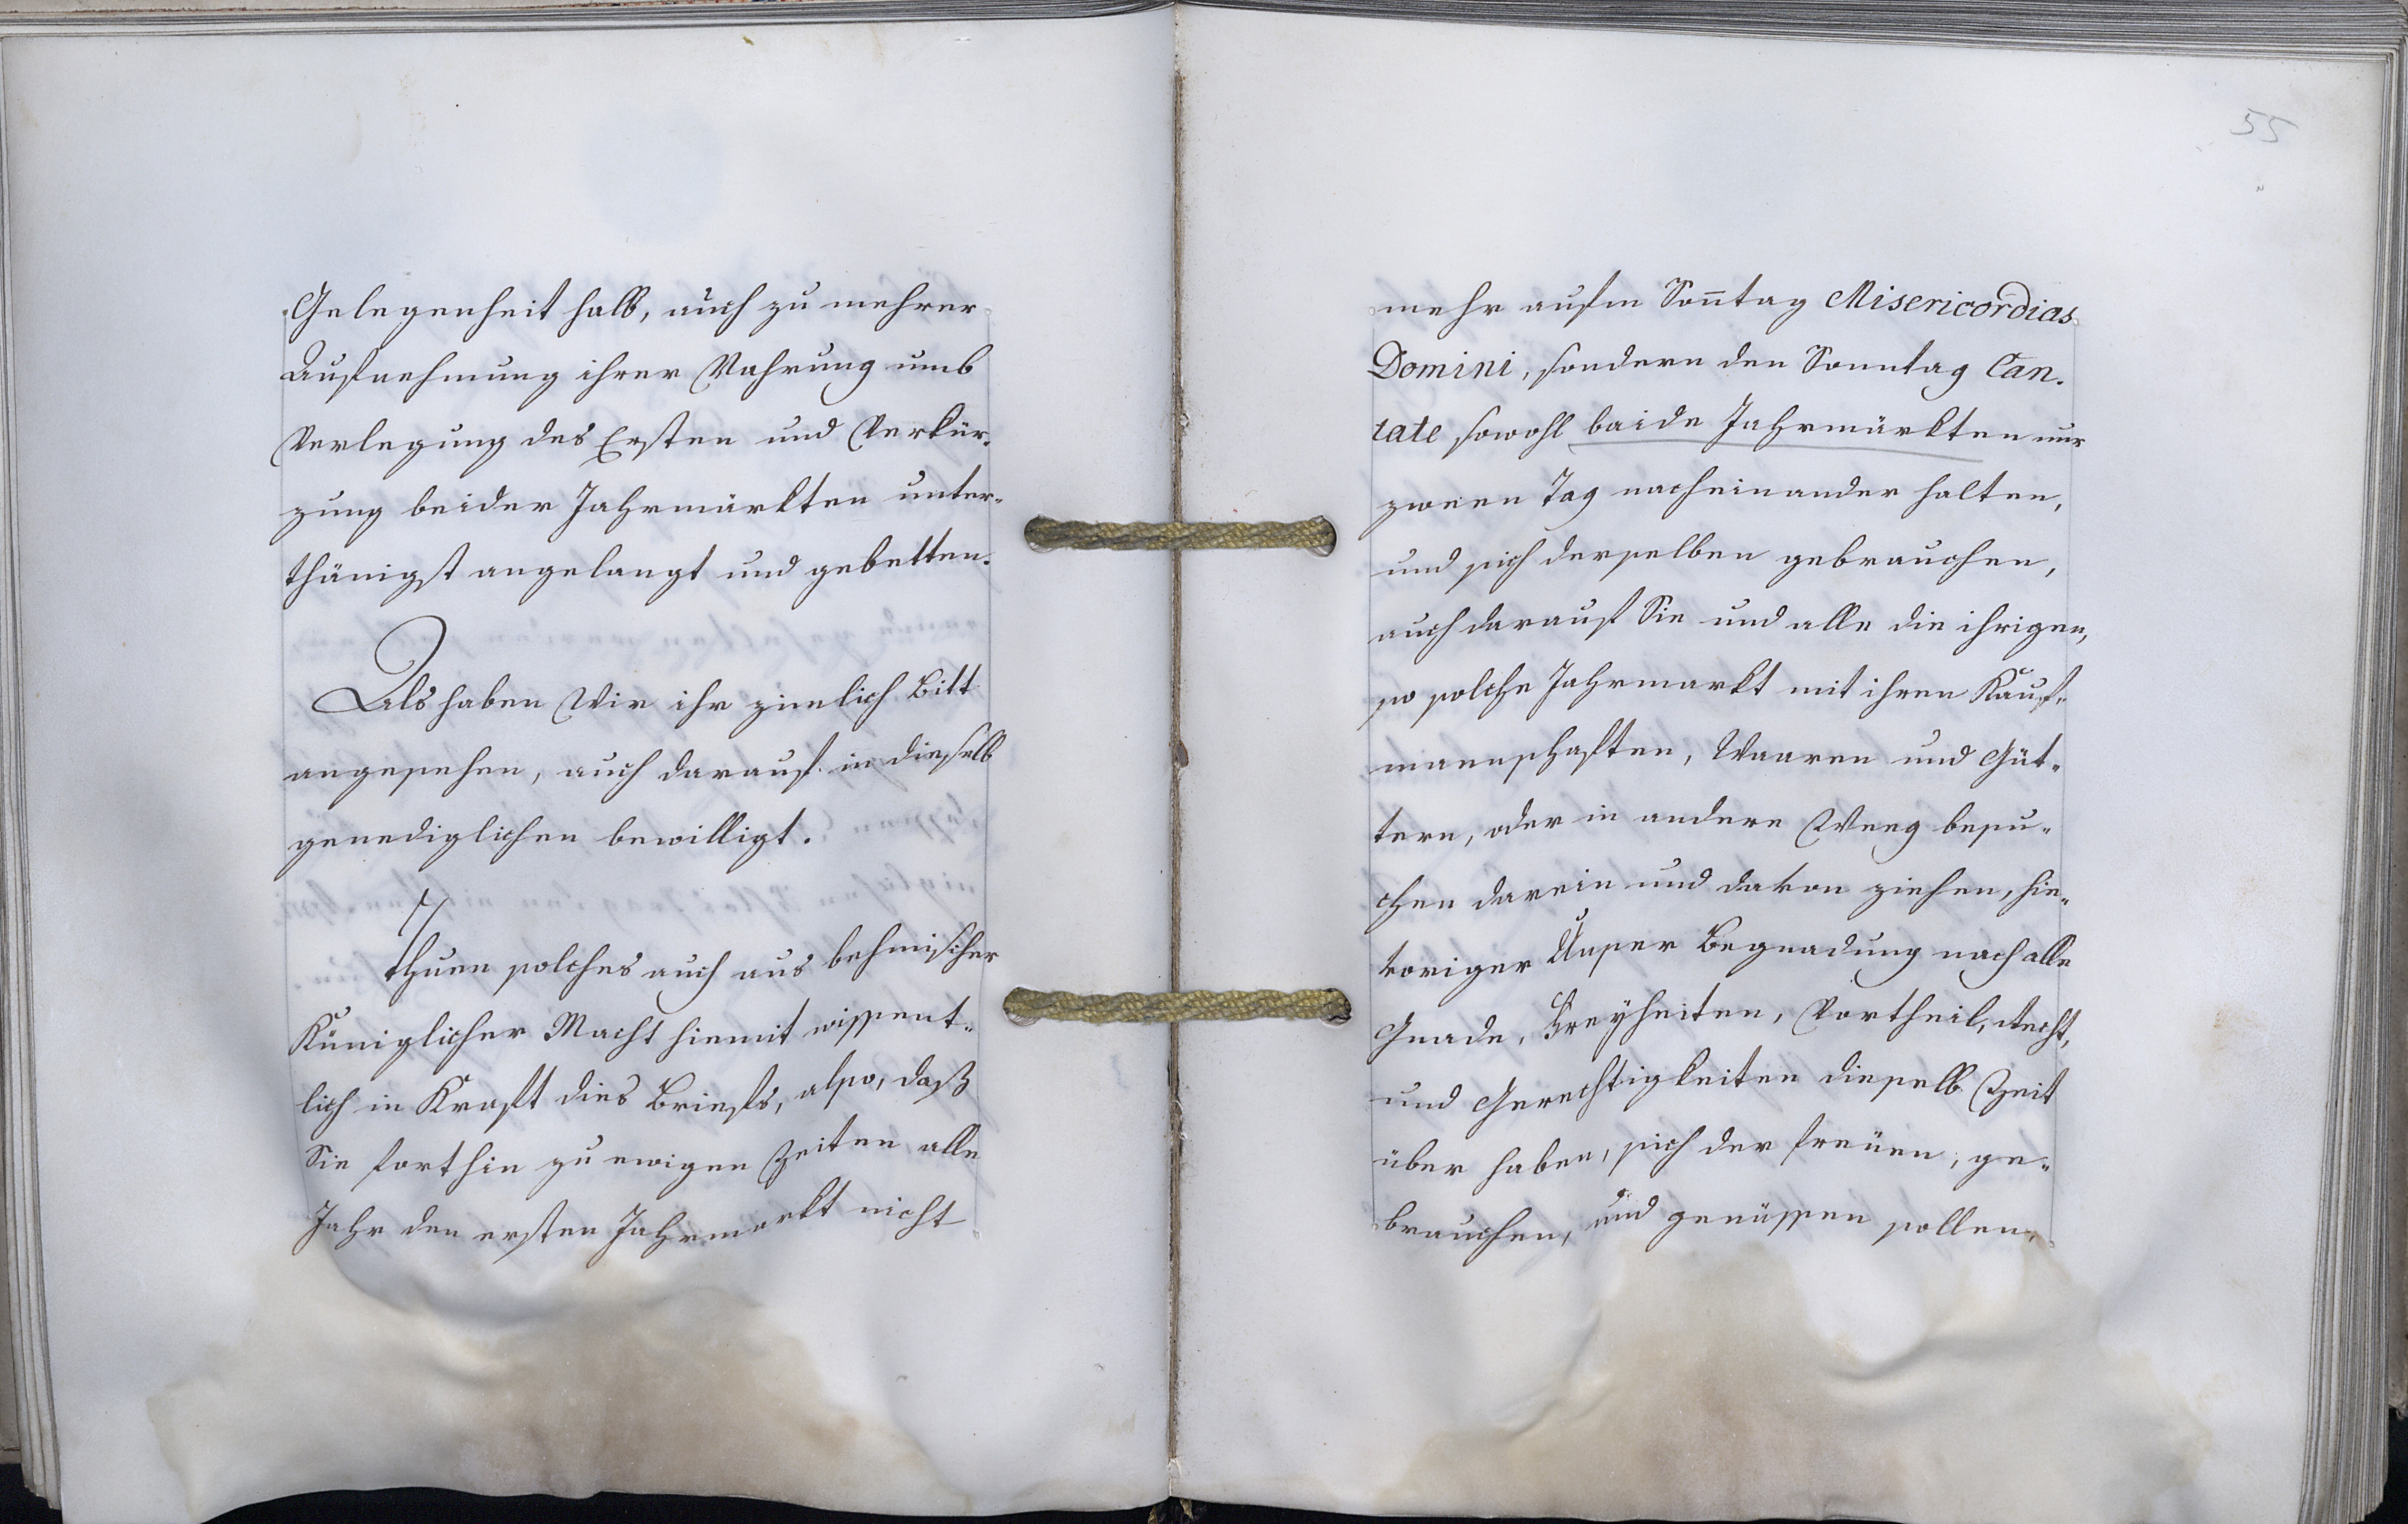 Gelegenheit halb, auch zu mehrer
Aufnehmung ihrer Nahrung umb
Verlegung des Ersten und Verkür-
zung beider Jahrmärkten unter-
thänigst angelangt und gebetten.
Als haben Wir ihr zimlich Bitt
angesehen, auch darauf in dieselb
genediglichen bewilligt.
thuen solches auch aus behmischer
Küniglicher Macht hiemit wissent-
lich in Kraft dies Briefs, also, daß
Sie forthin zu ewigen Zeiten alle
Jahr den ersten Jahrmarkt nicht
55
mehr aufm Son̄tag Misericordias
Domini, sondern den Sonntag Can-
tate sowohl baide Jahrmärkten nur
zween Tag nacheinander halten,
und sich derselben gebrauchen,
auch darauf Sie und alle die ihrigen,
so solche Jahrmarkt mit ihren Kauf-
mannschaften, Waaren und Güt-
tern, oder in andere Weeg besu-
chen darein und davon ziehen, hie-
voriger Unser Begnadung nach alle
Gnade, Freyheiten, Vortheil, Recht,
und Gerechtigkeiten dieselb Zeit
über haben, sich der freuen, ge-
brauchen, und genüssen sollen,